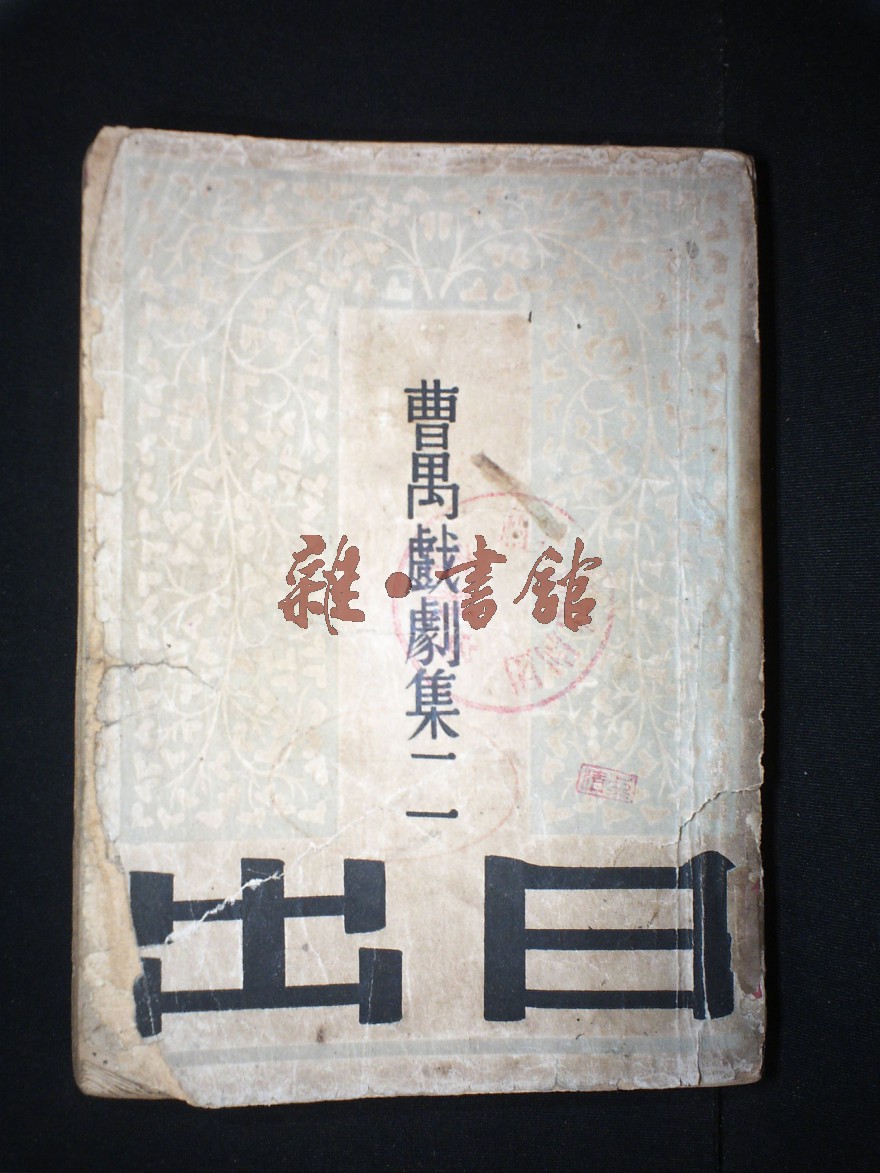 曹禺戲劇集二
日出
雜·書舘